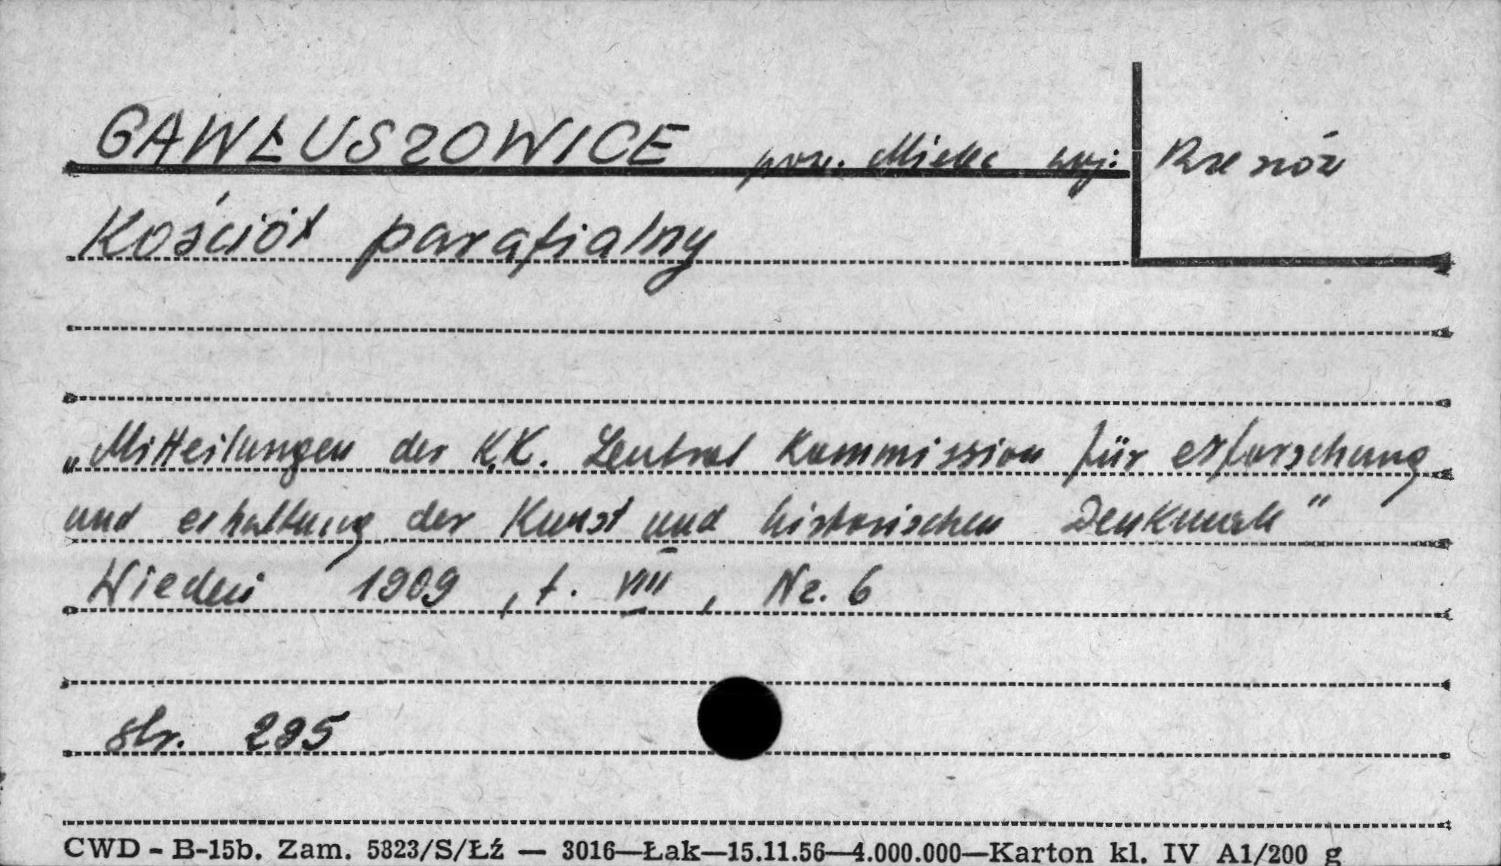 GAWŁUSZOWICE pow. Mielec woj: Rzeszów
Kościół parafialny
„Mitteilungen der K.K. Zentral Kommission für erforschung
und erhaltung der Kunst und historischen Denkmale"
Wiedeń 1909, t. VIII, Nr. 6
str. 295
CWD - B-15b. Zam. 5823/S/Łź — 3016—Łak—15.11.56—4.000.000—Karton kl. IV A1/200 g